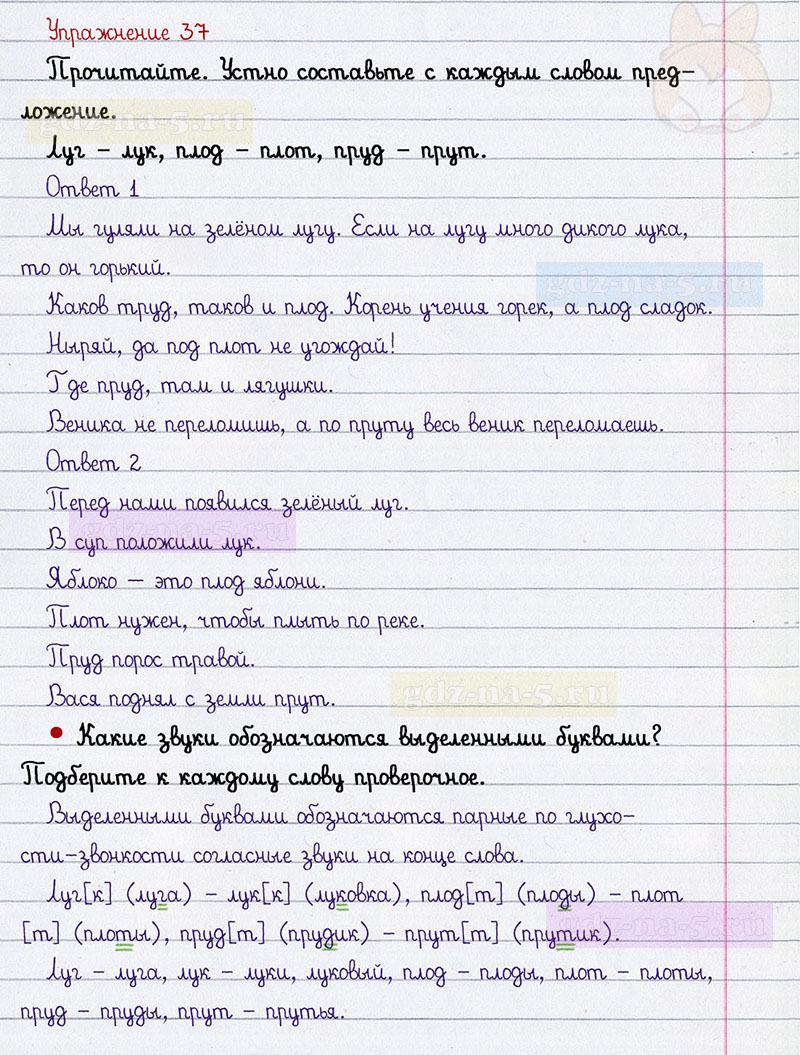 Упражнение 37
Прочитайте. Устно составьте с каждым словом пред-
ложение.
gdz-na-5.ru
Луг – лук, плод – плот, пруд – прут.
Ответ 1
Мы гуляли на зелёном лугу. Если на лугу много дикого лука,
то он горький.
gdz-na-5.ru
Каков труд, таков и плод. Корень учения горек, а плод сладок.
Ныряй, да под плот не угождай!
Где пруд, там и лягушки.
Веника не переломишь, а по пруту весь веник переломаешь.
Ответ 2
Перед нами появился зелёный луг.
gdz-na-5.ru
В суп положили лук.
Яблоко – это плод яблони.
Плот нужен, чтобы плыть по реке.
Пруд порос травой.
Вася поднял с земли прут.
gdz-na-5.ru
• Какие звуки обозначаются выделенными буквами?
Подберите к каждому слову проверочное.
Выделенными буквами обозначаются парные по глухо-
сти-звонкости согласные звуки на конце слова.
Луг[к] (луга) – лук[к] (луковка), плод[т] (плоды) – плот
[т] (плоты), пруд[т] (прудик) – прут[т] (прутик).
gdz-na-5.ru
Луг – луга, лук – луки, луковый, плод – плоды, плот – плоты,
пруд – пруды, прут – прутья.